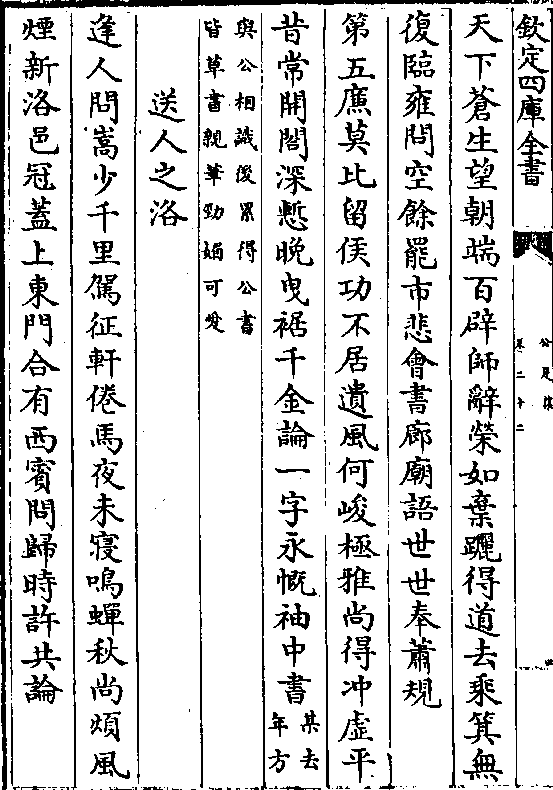 欽定四庫全書
公是集
卷二十二
天下蒼生望朝端百辟師辭榮如棄躧得道去乘箕無
復臨雍問空餘罷市悲會書廊廟語世世奉蕭規
第五廌莫比留侯功不居遺風何峻極雅尚得冲虛平
昔常開閤深慙晚曳裾千金論一字永慨袖中書某去年方
與公相識後累得公書
皆草書親筆勁媚可愛
送人之洛
逢人問嵩少千里駕征軒倦馬夜未寢鳴蟬秋尚煩風
煙新洛邑冠蓋上東門合有西賓問歸時許共論